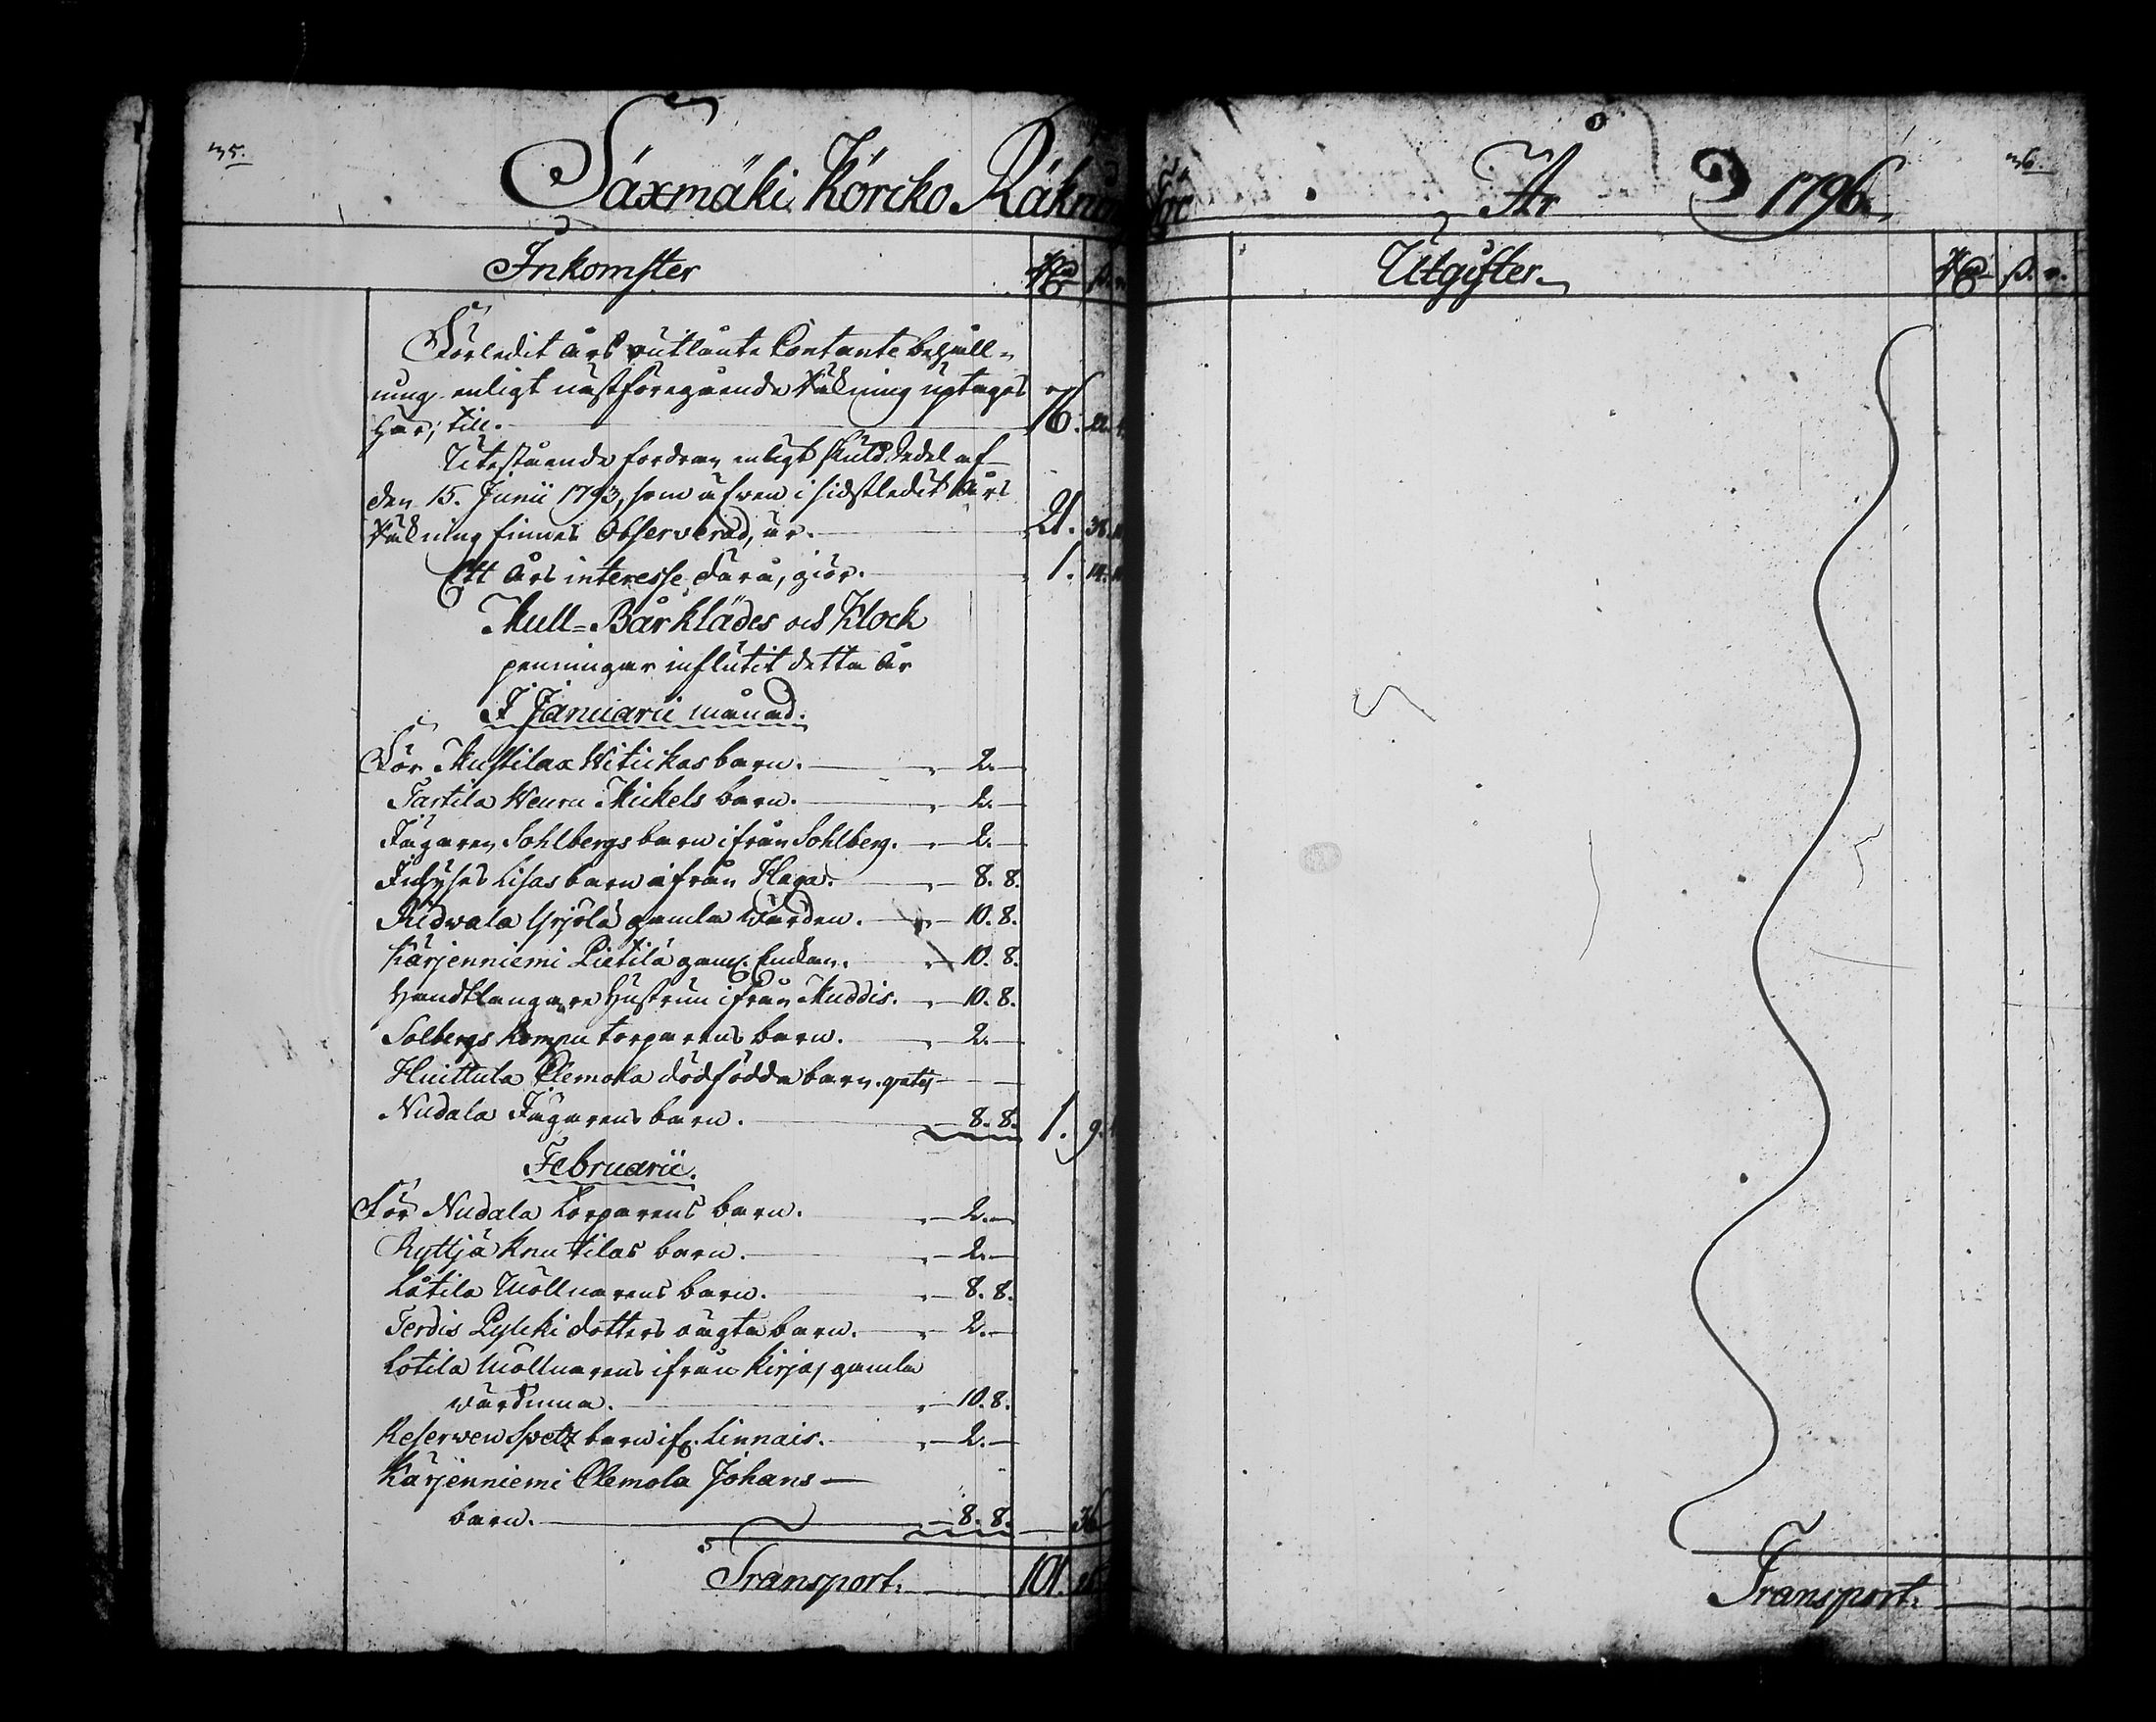 35.
Säxmäki Körcko Räkning
Inkomster
Rd ß. r.
Förledit års outlånte Contante behåll-
ning enligt nästföregående Räkning uptages
här, till. 76. 22.
Utestående fordran enligt skuldsedel af
den 15. Junii 1793, som äfwen i sidstledit års
Räkning finnes Observerad, är. 21. 38.
Ett års interesse därå, giör. 1. 14.
Mull-Bårklädes och Klock
penningar influtit detta år
I Januarii månad.
För Mustilax Witickas barn. 2.
Tartila Mickels barn. 2.
Jägaren Sohlbergs barn ifrån Sohlberg. 2.
Lisas barn ifrån Haga. 8. 8.
Ridwala Yrjölä gamla Wärden. 10. 8.
Kärjenniemi Pietilä gaml. Enkan. 10. 8.
Handtlangare Hustrun ifrån Muddis. 10. 8.
Solbergs Kompu torparens barn. 2.
Huittula Clemola dödfödda barn. gratis
Nudala Jägarens barn. 8. 8. 1. 9.
Februarii.
För Nudala torparens barn. 2.
Ryttjä Knutilas barn. 2.
Låtila Möllnarens barn. 8. 8.
Terdis Pylcki dotters oägta barn. 2.
Lotila Möllnarens ifrån Kirjas gamla
wärdinna. 10. 8.
Reserwen Spetz barn ifr. Linnais. 2.
Kärjenniemi Clemola Johans
barn. 8. 8. 36
Transport. 101.
36.
för År 1796.
Utgifter.
Rd ß. r.
Transport.